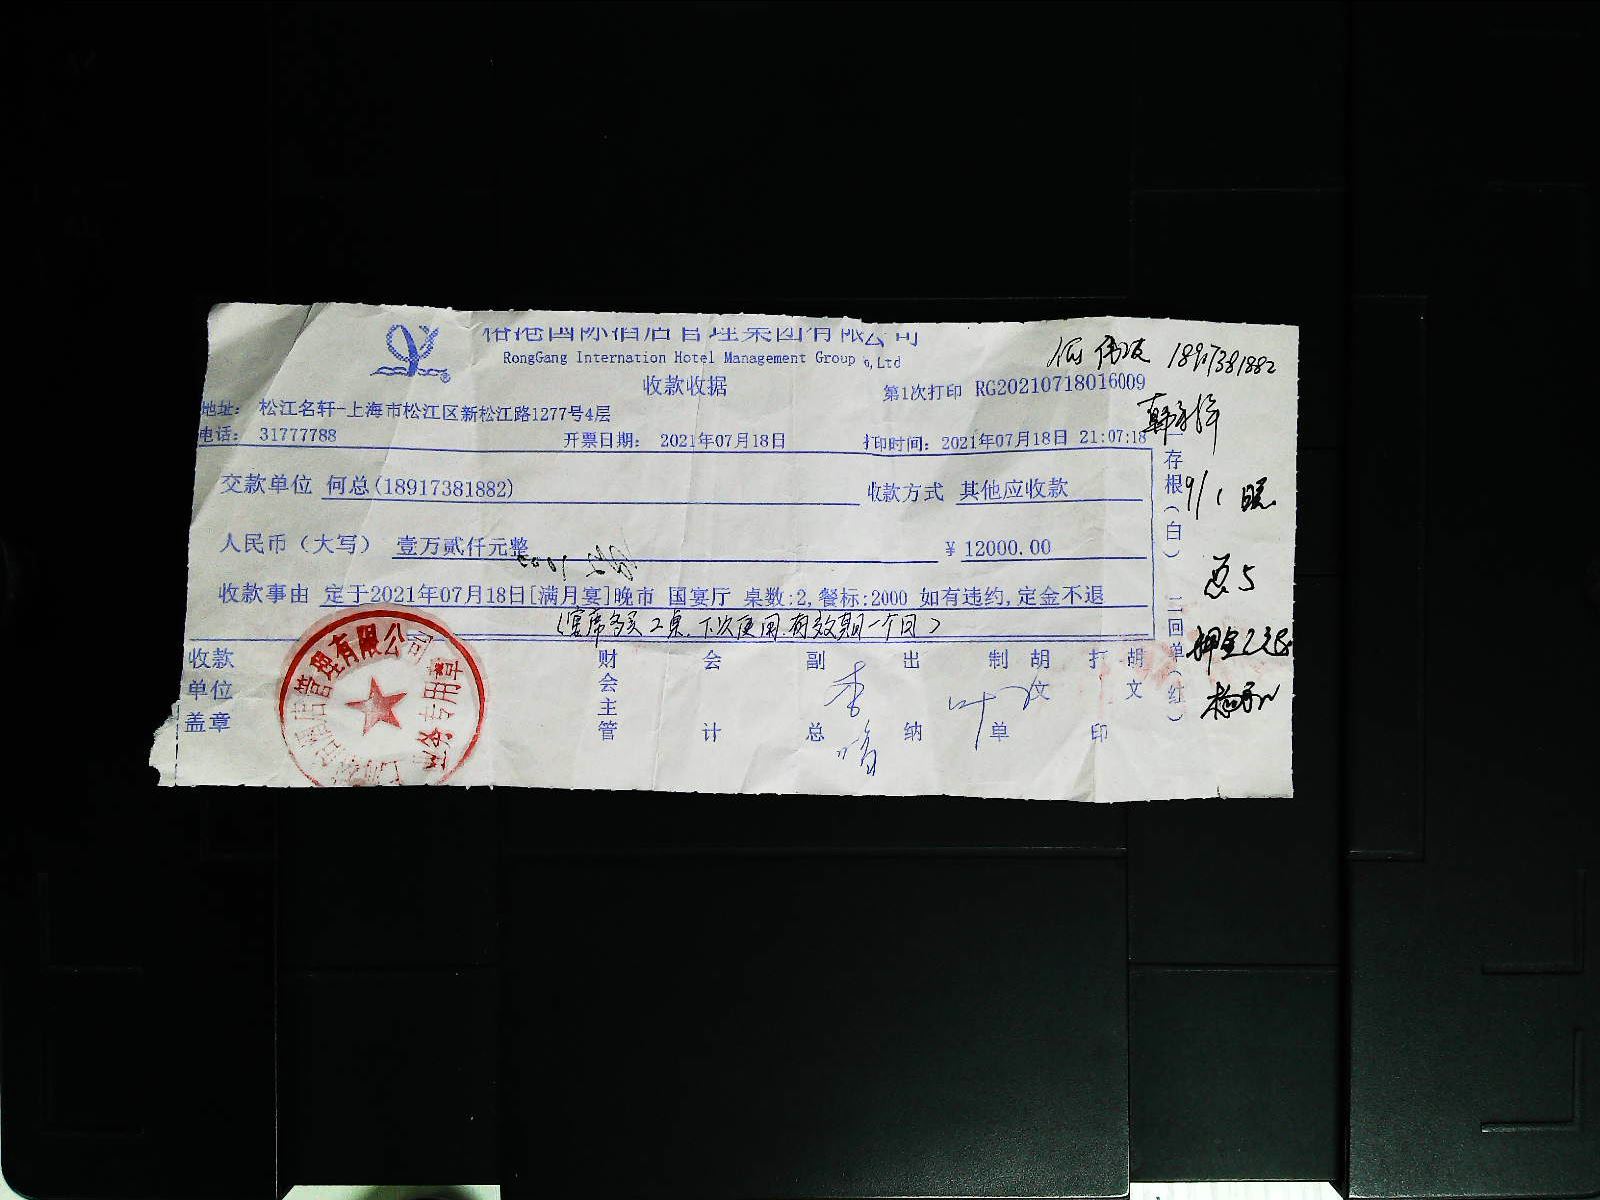 榕港国际酒店管理集团有限公司
RongGang Internation Hotel Management Group Co,Ltd
收款收据
第1次打印 RG20210718016009
18917381882
地址： 松江名轩-上海市松江区新松江路1277号4层
电话： 31777788
开票日期： 2021年07月18日
打印时间： 2021年07月18日 21:07:18
交款单位 何总(18917381882)
收款方式 其他应收款
人民币（大写） 壹万贰仟元整
¥ 12000.00
收款事由 定于2021年07月18日[满月宴]晚市 国宴厅 桌数:2,餐标:2000 如有违约,定金不退
(宴席多买2桌.下次使用.有效期一个月)
收款单位盖章
财会主管
会计
副总
出纳
制单
胡文
打印
胡文
一存根(白) 二回单(红)
9/1 晚
总5
押金已退
管理有限公司
业务专用章